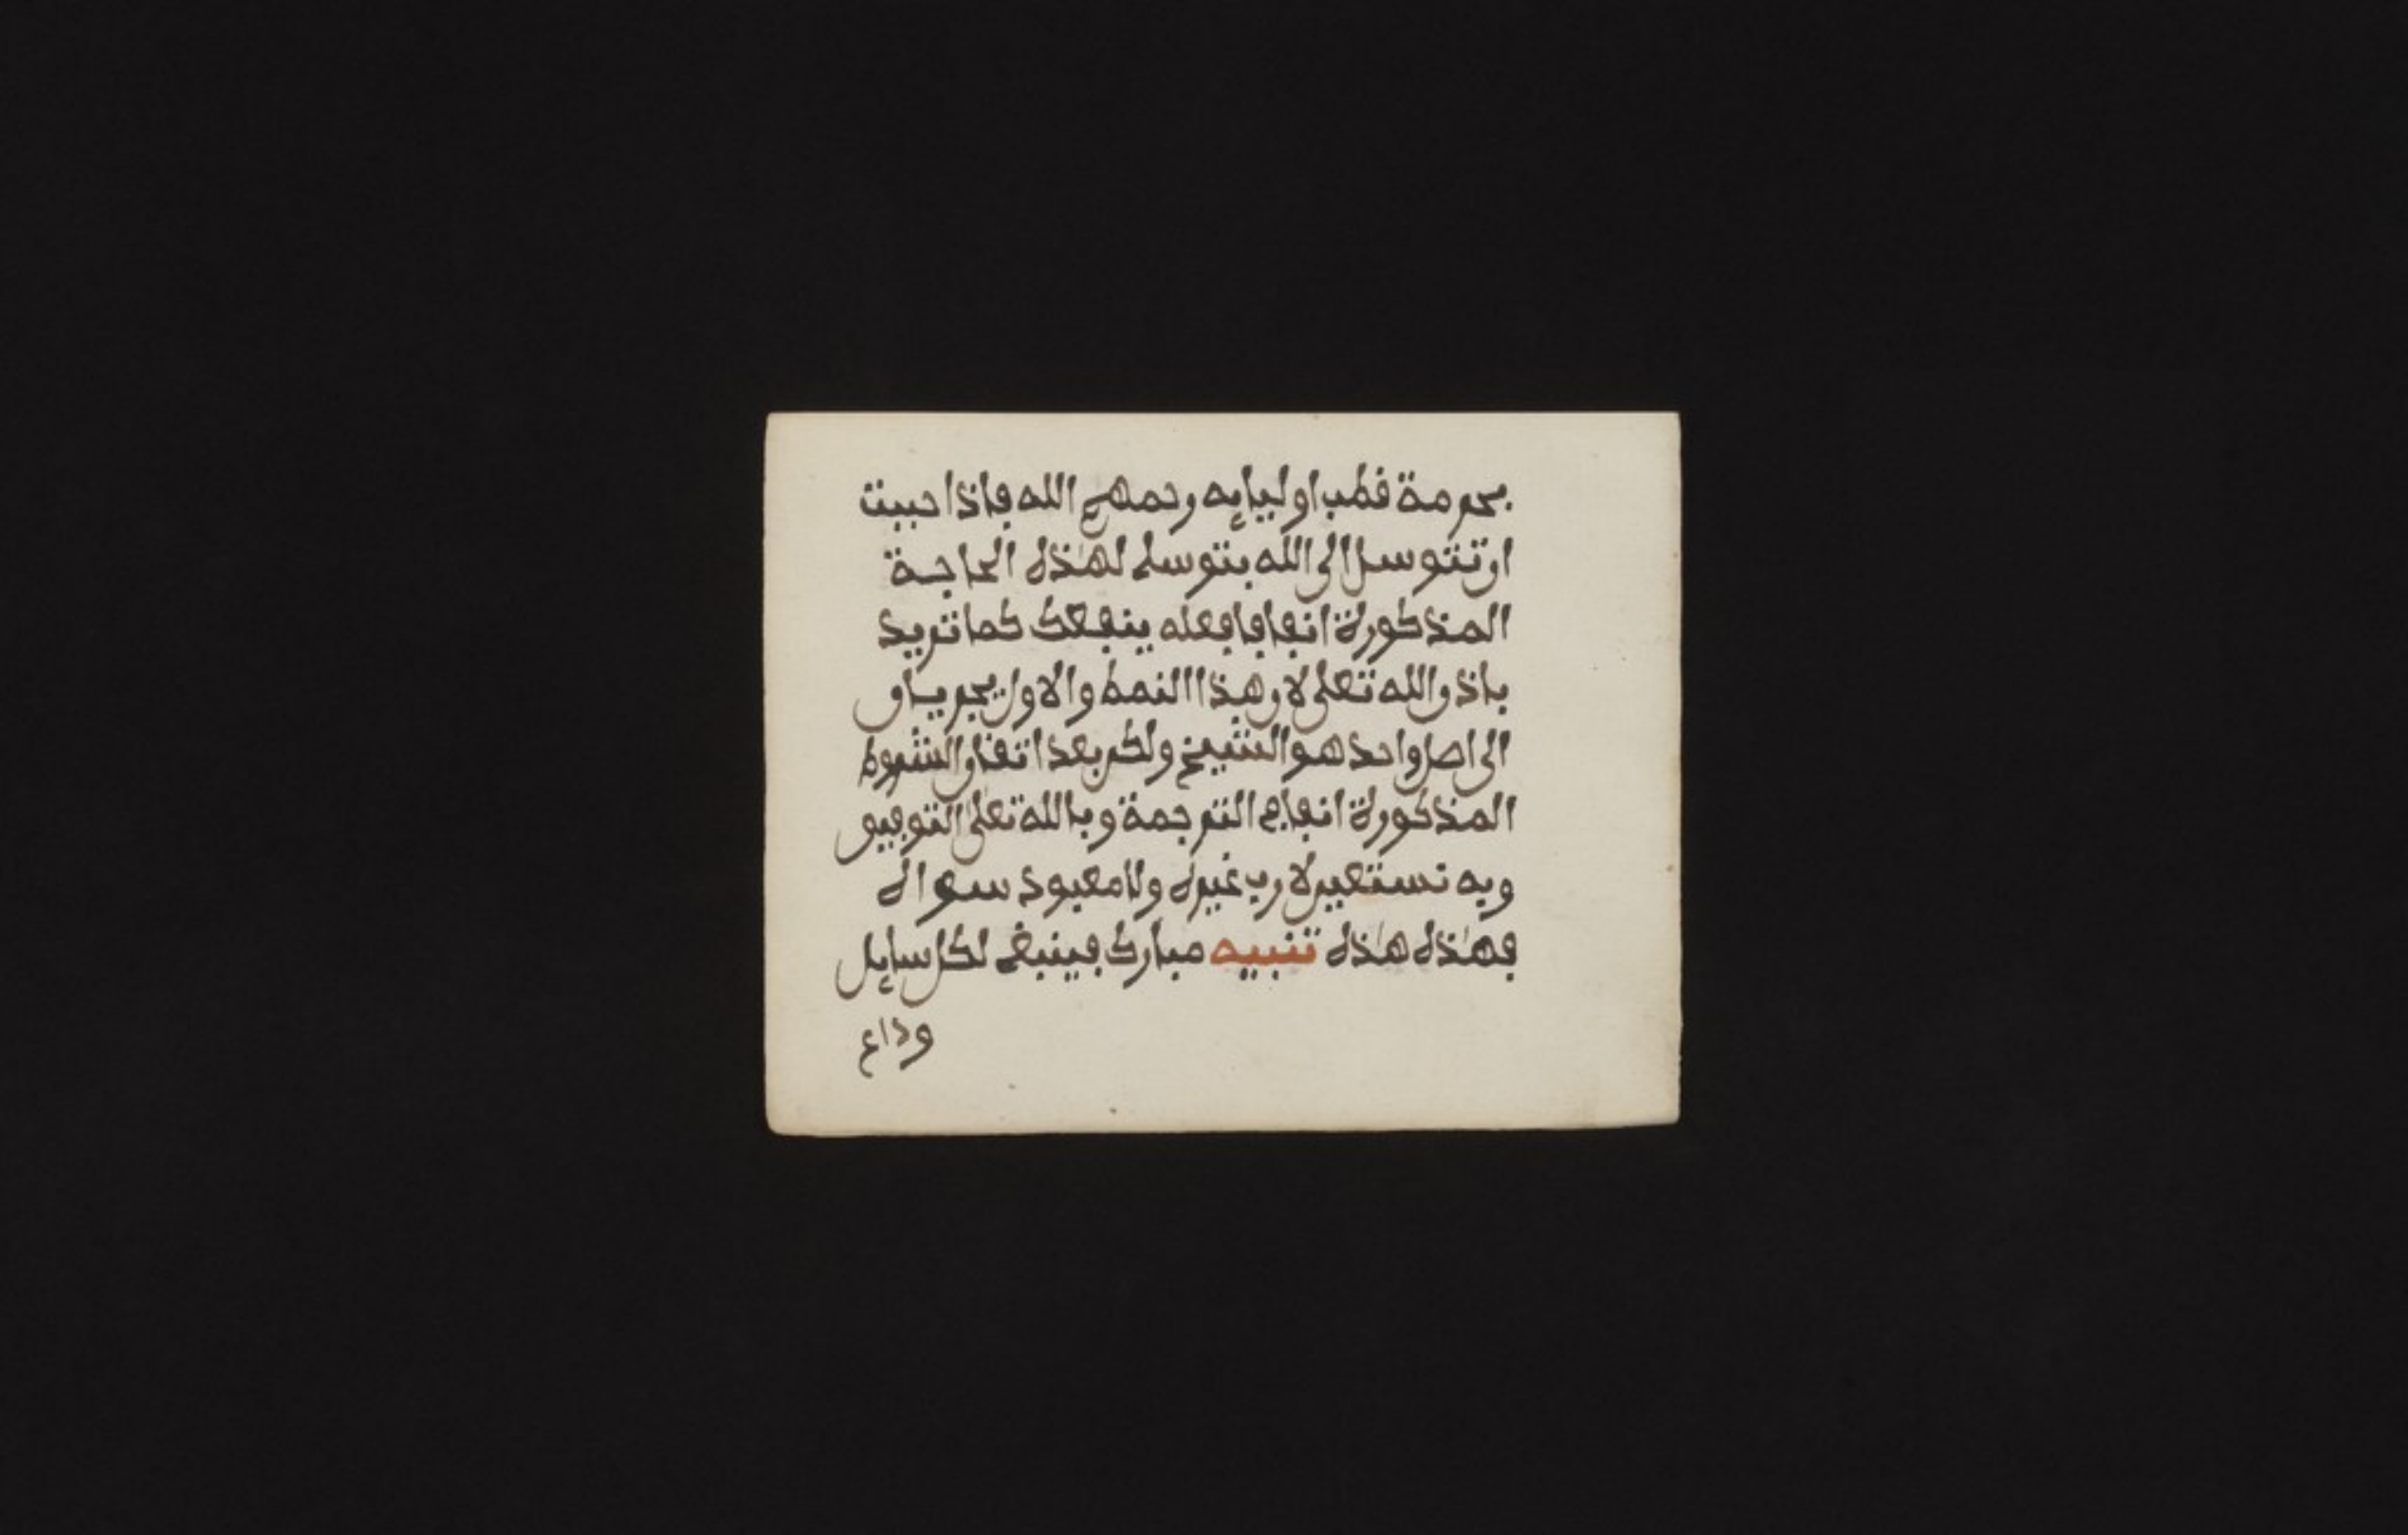 بحرمة قطب اوليايه رحمهم الله فاذا حببت
ان تتوسل الى الله بتوسلى لهذه الحاجة
المذكورة انفا فافعله ينفعك كما تريد
باذن الله تعلى لان هذا النمط والاول يجريان
الى اصل واحد هو الشيخ ولكن بعد اتقان الشروط
المذكورة انفا في الترجمة وبالله تعلى التوفيق
وبه نستعين لا رب غيره ولا معبود سواه
فهذه هذه تنبيه مبارك فينبغى لكل سايل
وداع